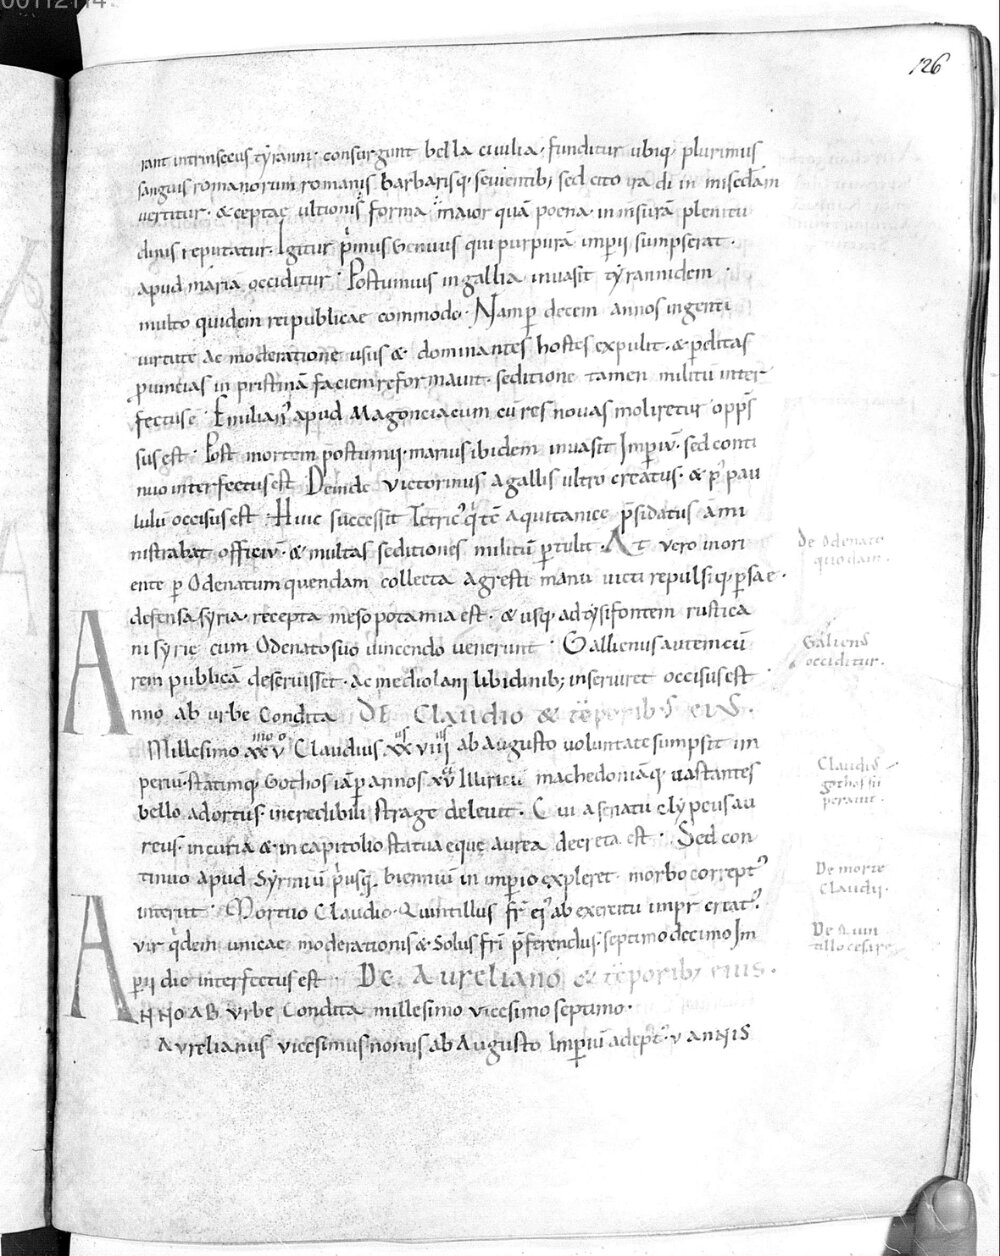 00112114
126
rant intrinsecus tyranni· consurgunt bella ciuilia· funditur ubiq; plurimus
sanguis romanorum romanis barbarisq; seuientib; sed cito ira dī in misc̄dam
uertitur· & ceptae ultionis forma maior quā poena in insurā plenitu
dinis reputatur· Igitur p̄mus Genuus qui purpurā imp̄ii sumpserat·
apud miria occiditur· Postumius in gallia inuasit tyrannidem
multo quidem reipublicae commodo· Nam p̲ decem annos ingenti
uirtute ac moderatione usus &· dominantes hostes expulit· & p̲ditas
p̲uincias in pristinā faciem reformauit· seditione tamen militū inter
fectus ē· Emilian⁹ apud Magonciacum cū res nouas moliretur opp̄s
sus est· Post mortem postumii· marius ibidem inuasit Imp̲iū· sed conti
nuo interfectus est Deinde victorinus a gallis ultro creatus· & p⁹ pau
lulū occisus est· Huic successit Tetric⁹ q̇ tē aquitanice p̄sidatus āmi
nistrabat officiū· & multas seditiones militū p̲tulit· At vero in ori
ente p̲ Odenatum quendam collecta agresti manu uicti repulsiq; p̲sae·
defensa syria· recepta mesopotamia est· & usq; ad tysifontem rustica
ni syrie cum Odenato suo uincendo uenerunt· Gallienus autem cū
rem publicā deseruisset· ac mediolani libidinib; inseruiret occisus est
Anno ab urbe Condita DE Claudio & tēporib; eiuS·
Millesimo xxvᵐᵒ ᵒ Claudius xxviiii ᵘˢ ab Augusto voluntate sumpsit im
periū· statimq; Gothos iā p̲ annos xv illiricū machedoniāq; uastantes
bello adortus· incredibili strage deleuit· Cui a senatu clypeus au
reus· in curia & in capitolio statua eque aurea decreta est· Sed con
tinuo apud Syrmiū p̄usq; bienniū in imperio expleret· morbo corrept⁹
interiit· Mortuo Claudio· Quintillus fr̄ ei⁹ ab exercitu imp̄r creat⁹·
vir q̇dem unicae moderationis & Solus fr̄i p̄ferendus· septimo decimo Im
p̲ii die interfectus est De Aureliano & tēporib; eius·
ANNO AB Vrbe Condita millesimo vicesimo septimo·
Avrelianus vicesimus nonus ab Augusto Imp̲iū adept⁹· v annis
De Odenato
quodam·
Galien⁹
occiditur·
Claudi⁹
gothos sū
perauit·
De morte
Claudij·
De Quin
tillo cesare